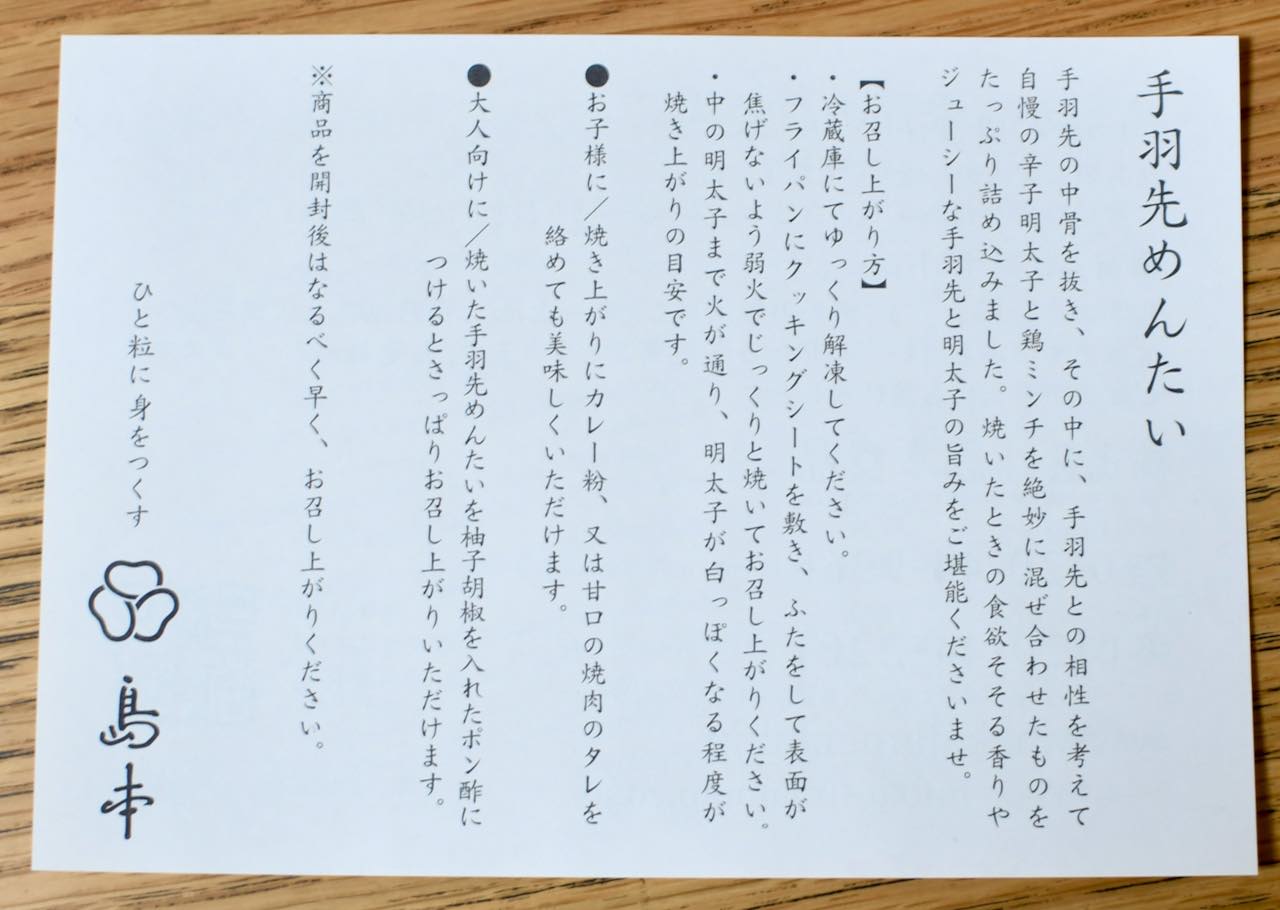 手羽先めんたい
手羽先の中骨を抜き、その中に、手羽先との相性を考えて
自慢の辛子明太子と鶏ミンチを絶妙に混ぜ合わせたものを
たっぷり詰め込みました。焼いたときの食欲そそる香りや
ジューシーな手羽先と明太子の旨みをご堪能くださいませ。
【お召し上がり方】
・冷蔵庫にてゆっくり解凍してください。
・フライパンにクッキングシートを敷き、ふたをして表面が
焦げないよう弱火でじっくりと焼いてお召し上がりください。
・中の明太子まで火が通り、明太子が白っぽくなる程度が
焼き上がりの目安です。
●お子様に／焼き上がりにカレー粉、又は甘口の焼肉のタレを
絡めても美味しくいただけます。
●大人向けに／焼いた手羽先めんたいを柚子胡椒を入れたポン酢に
つけるとさっぱりお召し上がりいただけます。
※商品を開封後はなるべく早く、お召し上がりください。
ひと粒に身をつくす
島本